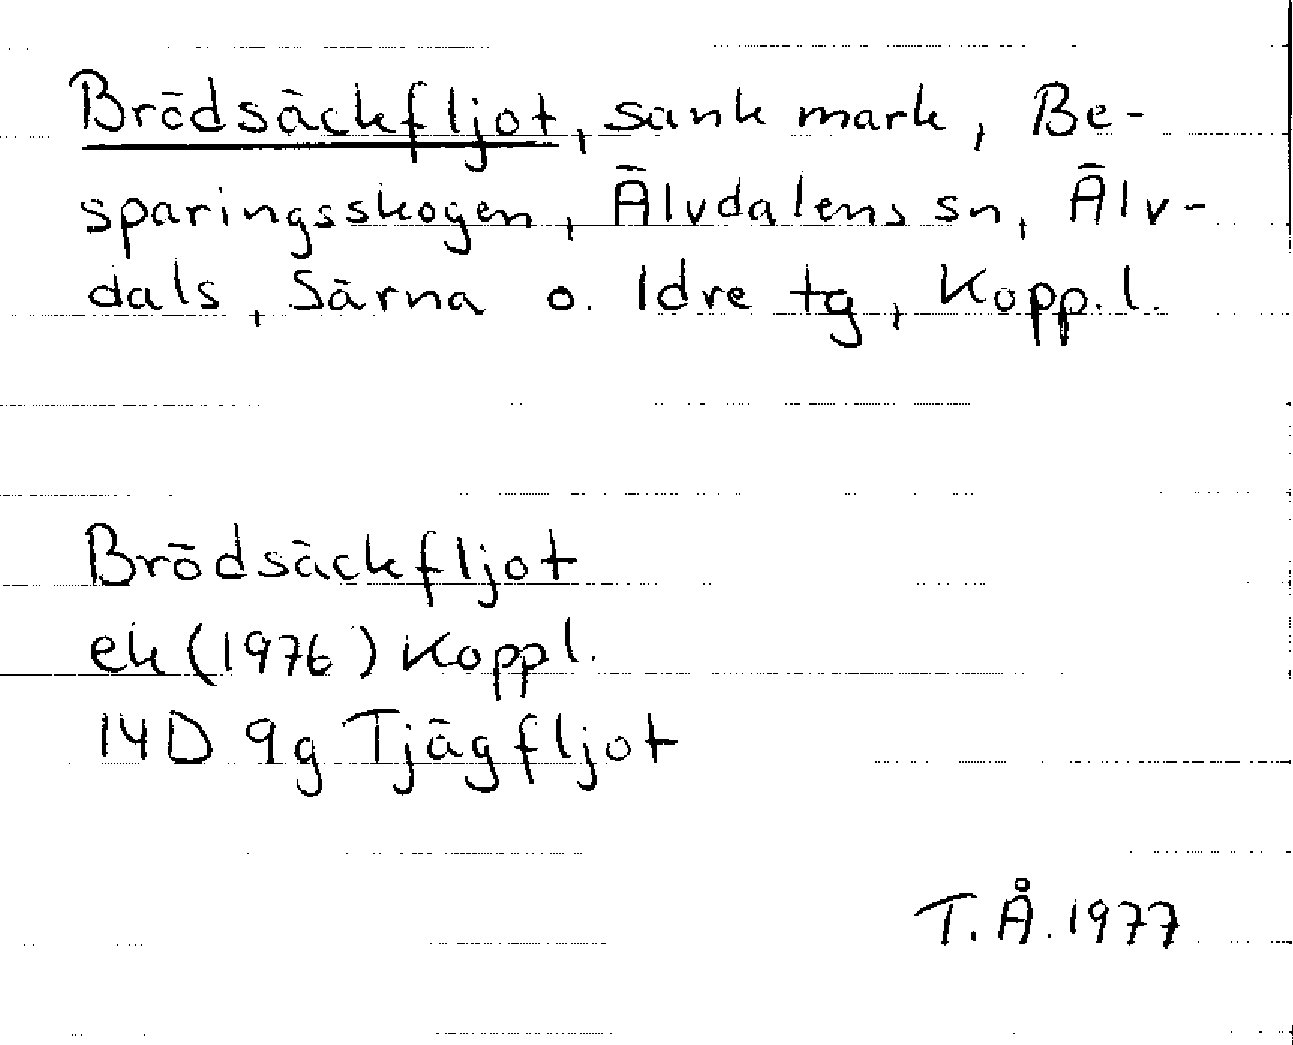 Brödsäckfljot, sank mark, Be-
sparingsskogen, Älvdalens sn, Älv-
dals, Särna o. Idre tg, Kopp.l.
Brödsäckfljot
ek (1976) Koppl.
14D 9g Tjägfljot
T.Å. 1977